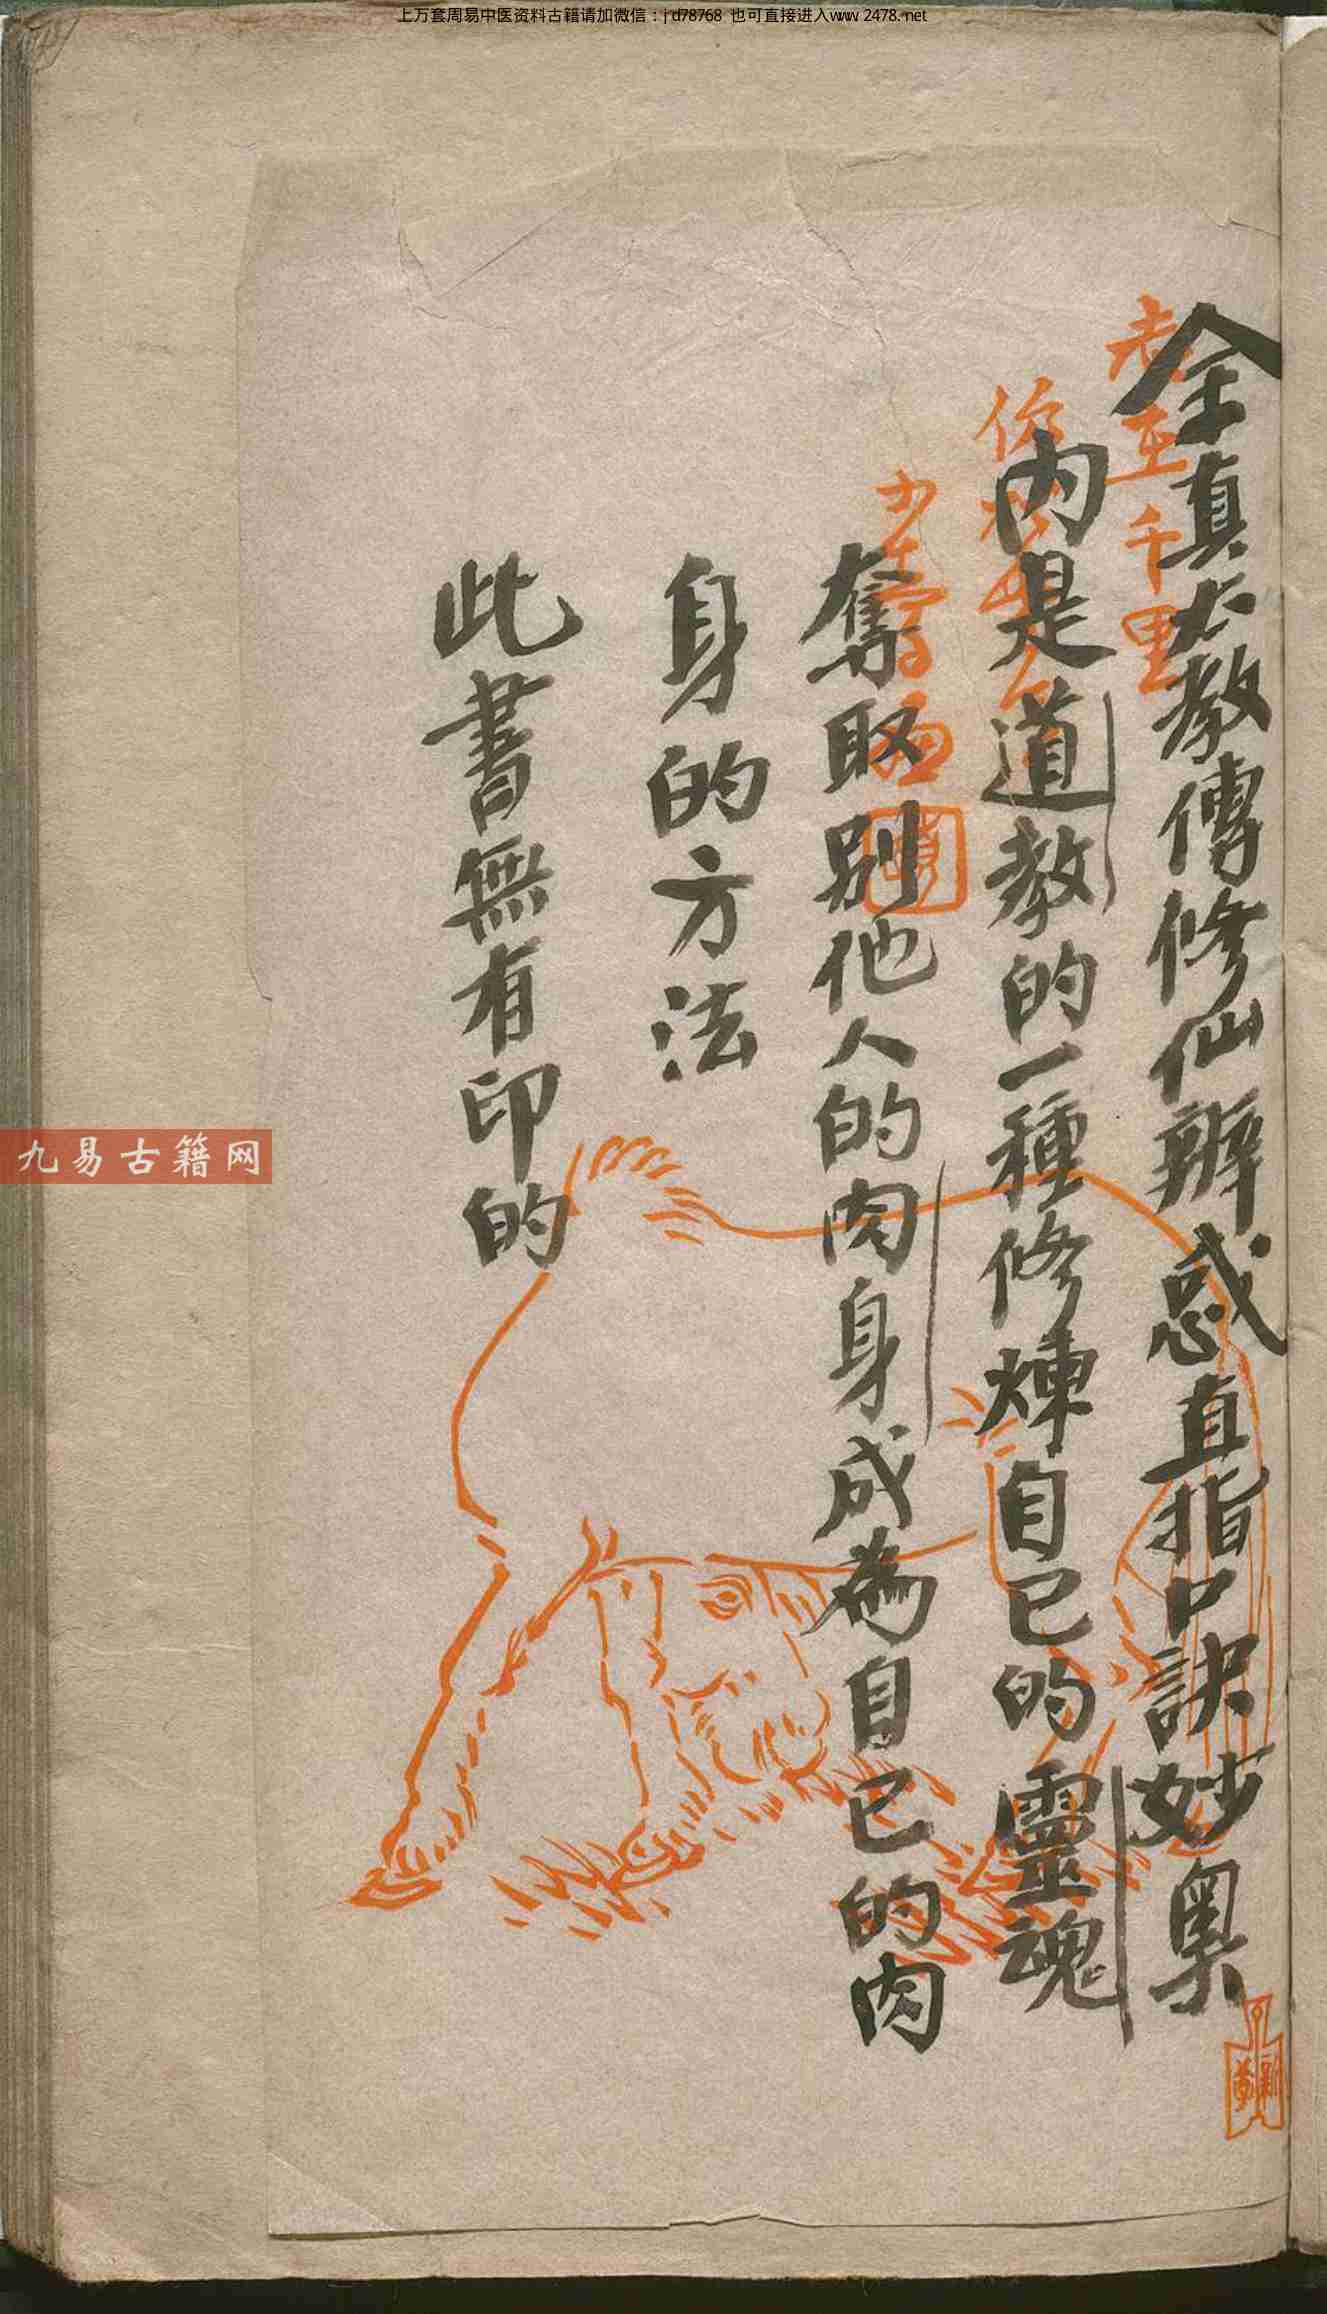 上万套周易中医资料古籍请加微信：jd78768 也可直接进入www.2478.net
全真大教傳修仙辦惑直指口訣妙奧
內是道教的一種修煉自己的靈魂
奪取別他人的肉身成為自己的肉
身的方法
此書無有印的
老至千里
九易古籍网